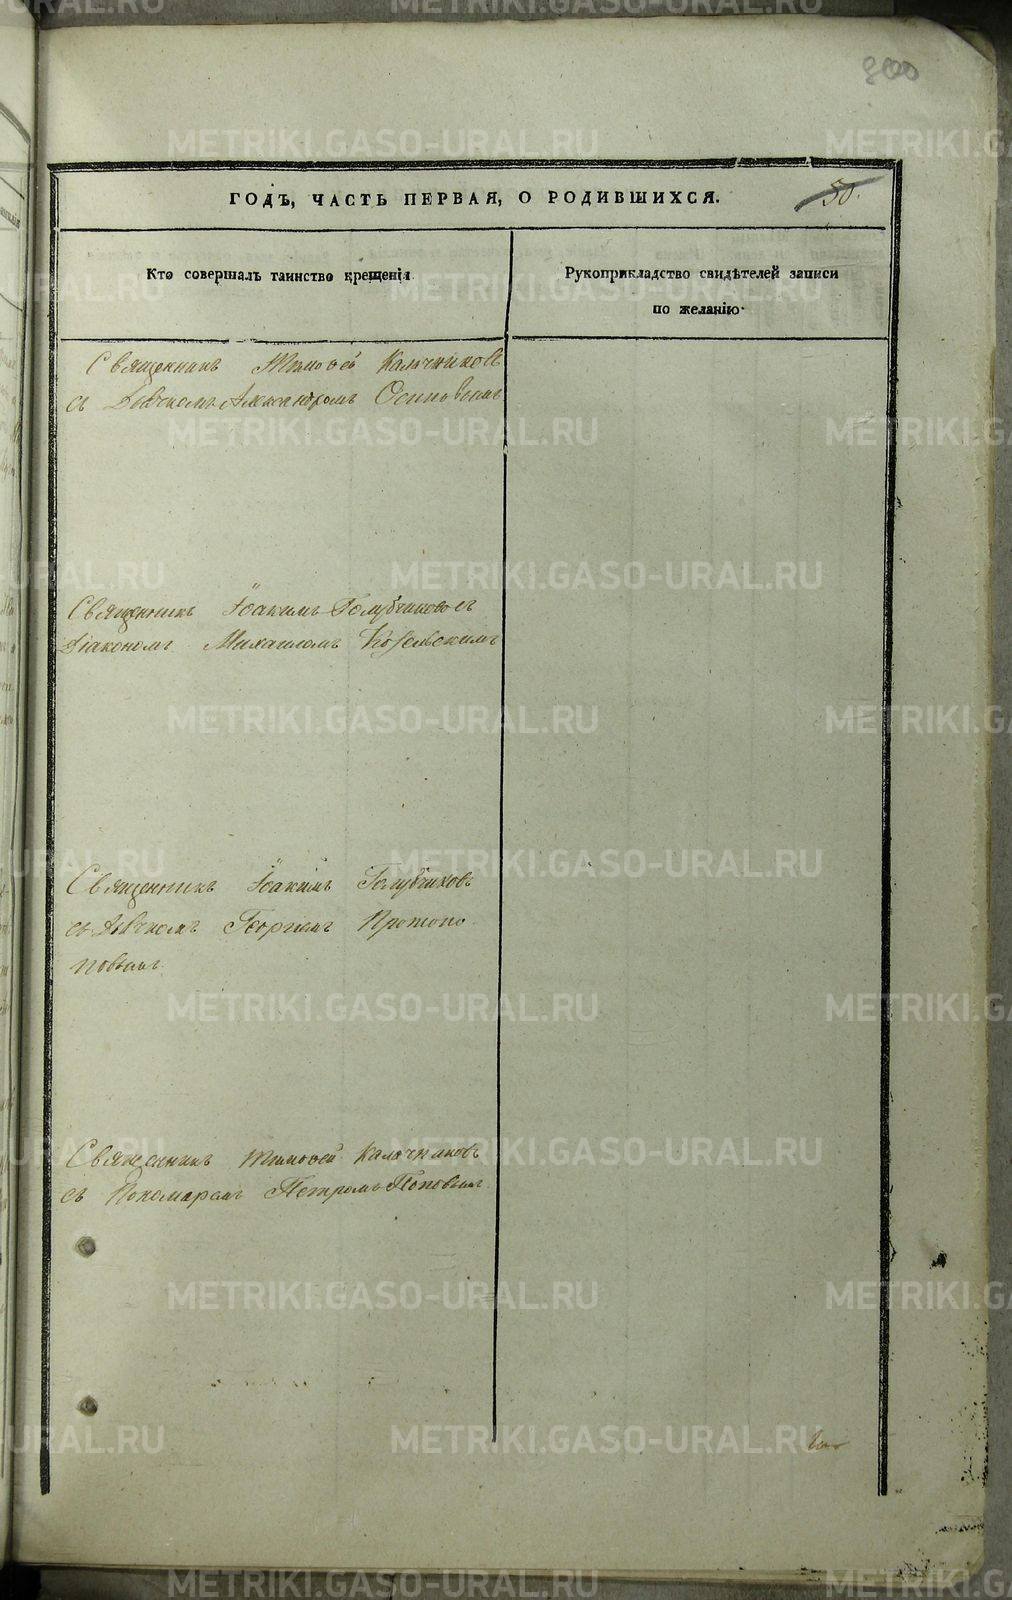 800
ГОДЪ, ЧАСТЬ ПЕРВАЯ, О РОДИВШИХСЯ.
50.
Кто совершалъ таинство крещенія
Рукоприкладство свидѣтелей записи
по желанію.
Священникъ Тимоѳей Калачниковъ
съ Дьячкомъ Александромъ Осиповымъ
Священникъ Іоакимъ Голубчиковъ съ
Діакономъ Михаиломъ Козельскимъ
Священникъ Іоакимъ Голубчиковъ
съ Дьячкомъ Георгіемъ Протопо
повымъ
Священникъ Тимоѳей Калачниковъ
съ Пономаремъ Петромъ Поповымъ
METRIKI.GASO-URAL.RU